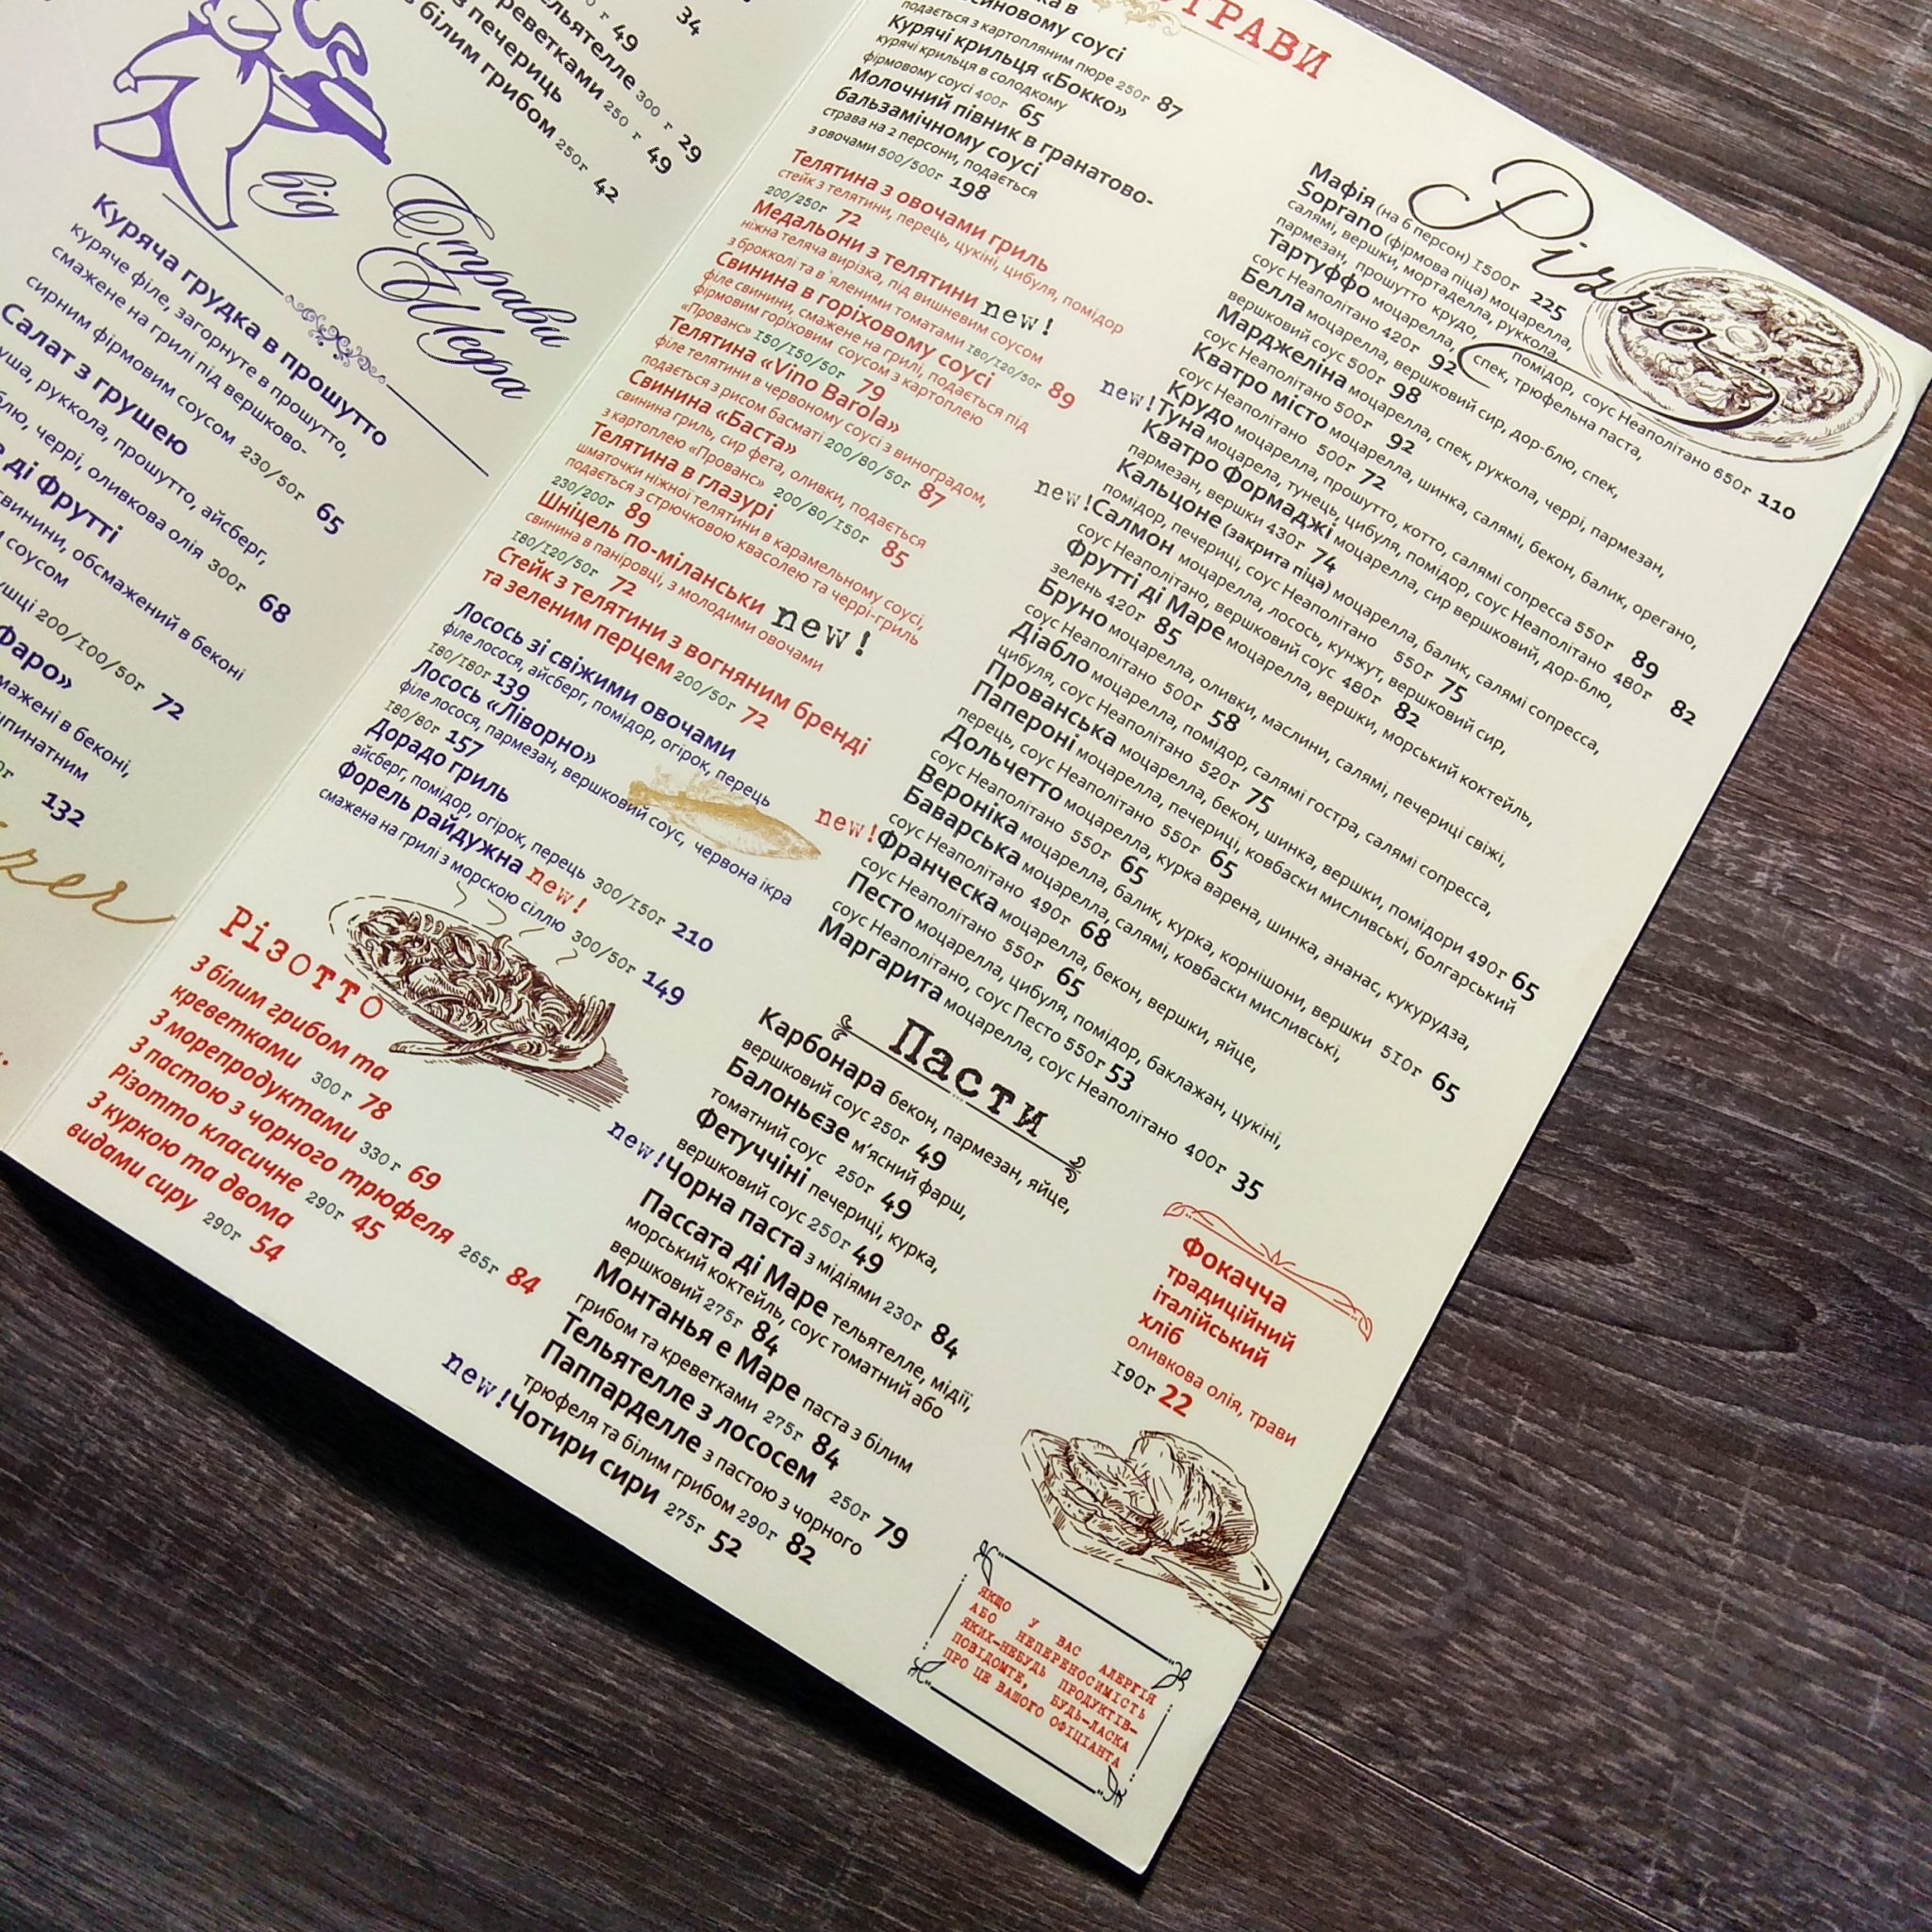 49
34
250г 42
300 г 29
250 г 49
білим грибом
з печериць
від
Страви
Шефа
Куряча грудка в прошутто
куряче філе, загорнуте в прошутто,
смажене на грилі під вершково-
сирним фірмовим соусом 230/50г 65
Салат з грушею
руккола, прошутто, айсберг,
черрі, оливкова олія 300г 68
ді Фрутті
свинини, обсмажений в беконі
соусом
200/100/50г 72
132
СТРАВИ
соусі
подається з картопляним пюре 250г 87
Курячі крильця «Бокко»
курячі крильця в солодкому
фірмовому соусі 400г 65
Молочний півник в гранатово-
бальзамічному соусі
страва на 2 персони, подається
з овочами 500/500г 198
Телятина з овочами гриль
стейк з телятини, перець, цукіні, цибуля, помідор
200/250г 72
Медальони з телятини new!
ніжна теляча вирізка, під вишневим соусом
з брокколі та в'яленими томатами 180/120/50г 89
Свинина в горіховому соусі
філе свинини, смажене на грилі, подається під
фірмовим горіховим соусом з картоплею
«Прованс» 150/150/50г 79
Телятина «Vino Barola»
філе телятини в червоному соусі з виноградом,
подається з рисом басматі 200/80/50г 87
Свинина «Баста»
свинина гриль, сир фета, оливки, подається
з картоплею «Прованс» 200/80/150г 85
Телятина в глазурі
шматочки ніжної телятини в карамельному соусі,
подається з стрючковою квасолею та черрі-гриль
230/200г 89
Шніцель по-міланськи new!
свинина в паніровці, з молодими овочами
180/120/50г 72
Стейк з телятини з вогняним бренді
та зеленим перцем 200/50г 72
Лосось зі свіжими овочами
філе лосося, айсберг, помідор, огірок, перець
180/180г 139
Лосось «Ліворно»
філе лосося, пармезан, вершковий соус, червона ікра
180/80г 157
Дорадо гриль
айсберг, помідор, огірок, перець 300/150г 210
Форель райдужна new!
смажена на грилі з морскою сіллю 300/50г 149
Різотто
З білим грибом та
креветками 300г 78
З морепродуктами 330г 69
З пастою з чорного трюфеля 265г 84
Різотто класичне 290г 45
З куркою та двома
видами сиру 290г 54
Pizza
Мафія (на 6 персон) 1500г 225
Soprano (фірмова піца) моцарелла,
салямі, вершки, мортаделла, руккола,
пармезан, прошутто крудо, помідор, соус Неаполітано 650г 110
Тартуффо моцарелла, спек, трюфельна паста,
соус Неаполітано 420г 92
Белла моцарелла, вершковий сир, дор-блю, спек,
вершковий соус 500г 98
Марджеліна моцарелла, спек, руккола, черрі, пармезан,
соус Неаполітано 500г 92
Кватро місто моцарелла, шинка, салямі, бекон, балик, орегано,
соус Неаполітано 500г 72
Крудо моцарелла, прошутто, котто, салямі сопресса 550г 89
new! Туна моцарела, тунець, цибуля, помідор, соус Неаполітано 480г 82
Кватро Формаджі моцарелла, сир вершковий, дор-блю,
пармезан, вершки 430г 74
Кальцоне (закрита піца) моцарелла, балик, салямі сопресса,
помідор, печериці, соус Неаполітано 550г 75
new! Салмон моцарелла, лосось, кунжут, вершковий сир,
соус Неаполітано, вершковий соус 480г 82
Фрутті ді Маре моцарелла, вершки, морський коктейль,
зелень 420г 85
Бруно моцарелла, оливки, маслини, салямі, печериці свіжі,
соус Неаполітано 500г 58
Діабло моцарелла, помідор, салямі гостра, салямі сопресса,
цибуля, соус Неаполітано 520г 75
Прованська моцарелла, бекон, шинка, вершки, помідори 490г 65
Папероні моцарелла, печериці, ковбаски мисливські, болгарський
перець, соус Неаполітано 550г 65
Дольчетто моцарелла, курка варена, шинка, ананас, кукурудза,
соус Неаполітано 550г 65
Вероніка моцарелла, балик, курка, корнішони, вершки 510г 65
Баварська моцарелла, салямі, ковбаски мисливські,
соус Неаполітано 490г 68
new! Франческа моцарелла, бекон, вершки, яйце,
соус Неаполітано 550г 65
Песто моцарелла, цибуля, помідор, баклажан, цукіні,
соус Неаполітано, соус Песто 550г 53
Маргарита моцарелла, соус Неаполітано 400г 35
Пасти
Карбонара бекон, пармезан, яйце,
вершковий соус 250г 49
Балоньєзе м'ясний фарш,
томатний соус 250г 49
Фетуччіні печериці, курка,
вершковий соус 250г 49
new! Чорна паста з мідіями 230г 84
Пассата ді Маре тельятелле, мідії,
морський коктейль, соус томатний або
вершковий 275г 84
Монтанья е Маре паста з білим
грибом та креветками 275г 84
Тельятелле з лососем 250г 79
Паппарделле з пастою з чорного
трюфеля та білим грибом 290г 82
new! Чотири сири 275г 52
Фокачча
традиційний
італійський
хліб
оливкова олія, трави
190г 22
ЯКЩО У ВАС АЛЕРГІЯ
АБО НЕПЕРЕНОСИМІСТЬ
ЯКИХ-НЕБУДЬ ПРОДУКТІВ-
ПОВІДОМТЕ, БУДЬ-ЛАСКА
ПРО ЦЕ ВАШОГО ОФІЦІАНТА